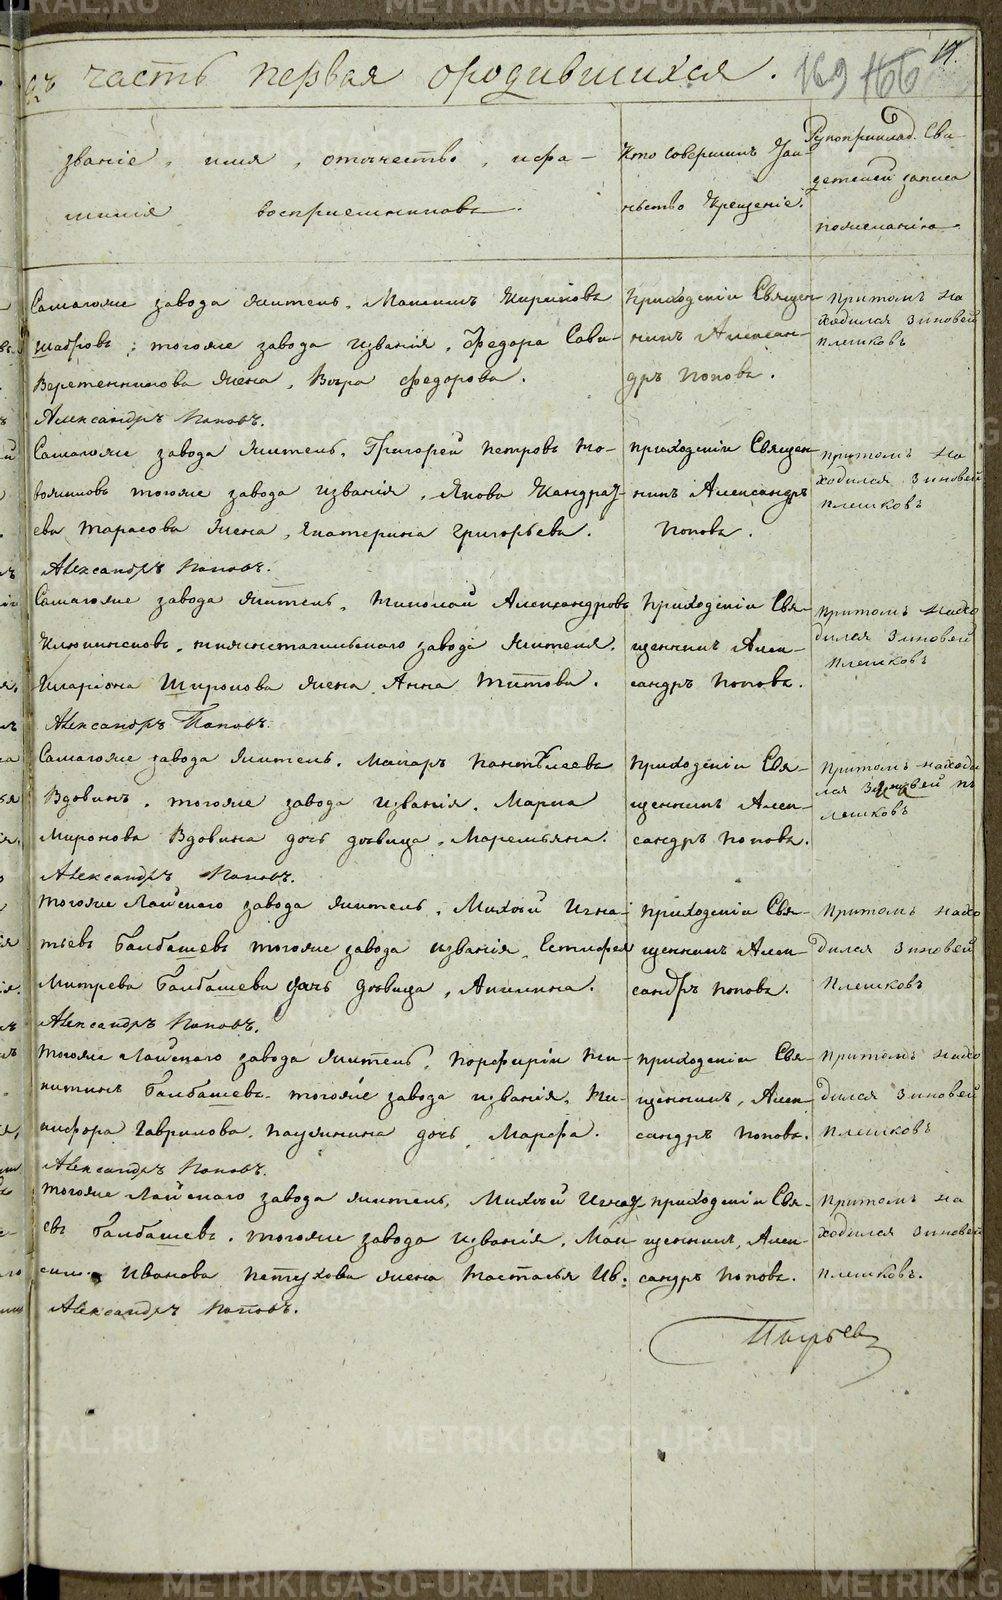 часть первая ородившихся.
169 166
17.
званіе, имя, отечество, ифа-
миліи воспріемниковъ.
Кто совершилъ Таи-
нство Крещеніе.
Рукоприклад. Сви-
детелей записа
пожеланію.
Самагоже завода житель, Максимъ Кириловъ
шабровъ; тогоже завода изванія, Федора Сави-
Веретенникова жена, Вѣра федорова.
Александръ Поповъ.
Приходскіи Священ
никъ Алексан-
дръ Поповъ.
Притомъ на
ходился Зиновей
Плешковъ
Самагоже завода житель, Григорей Петровъ
тогоже завода изванія, Якова Кандрат-
ева Тарасова жена, Екатерина Григорьева.
Александръ Поповъ.
приходскіи Священ
никъ Александръ
Поповъ.
притомъ на
ходился Зиновей
плешковъ
Самагоже завода житель, Николай Александровъ
нижнетагильскаго завода жителя,
Иларіона Широкова жена, Анна Титова.
Александръ Поповъ.
Приходскіи Свя-
щенникъ Алек-
сандръ Поповъ.
притомъ нахо
дился Зиновей
Плешковъ
Самагоже завода житель, Макаръ Пантѣлеевъ
Вдовинъ, тогоже завода изванія, Марка
Миронова Вдовина дочь дѣвица, Маремьяна.
Александръ Поповъ.
Приходскіи Свя-
щенникъ Алек-
сандръ Поповъ.
Притомъ находи
лся Зиновей пл
лешковъ
тогоже Лайскаго завода житель, Михѣй Игна-
тьевъ Балбашевъ тогоже завода изванія, Естифея
Митрева Балбашева дочь дѣвица, Акилина.
Александръ Поповъ.
приходскіи Свя-
щенникъ Алек-
сандръ Поповъ.
Притомъ нахо
дился Зиновей
Плешковъ
тогоже Лайскаго завода житель, Порфирій Ни-
китинъ Балбашевъ, тогоже завода изванія, Ни-
кифора Гаврилова, Паулинина дочь, Марфа.
Александръ Поповъ.
приходскіи Свя-
щенникъ, Алек
сандръ Поповъ.
Притомъ нахо
дился Зиновей
Плешковъ
тогоже Лайскаго завода житель, Михѣй Игнат
евъ Балбашевъ, тогоже завода изванія, Мак
сима Иванова Петухова жена Настасья Ив.
Александръ Поповъ.
приходскіи Свя-
щенникъ, Алек-
сандръ Поповъ.
Притомъ на
ходился Зиновей
Плешковъ.
METRIKI.GASO-URAL.RU